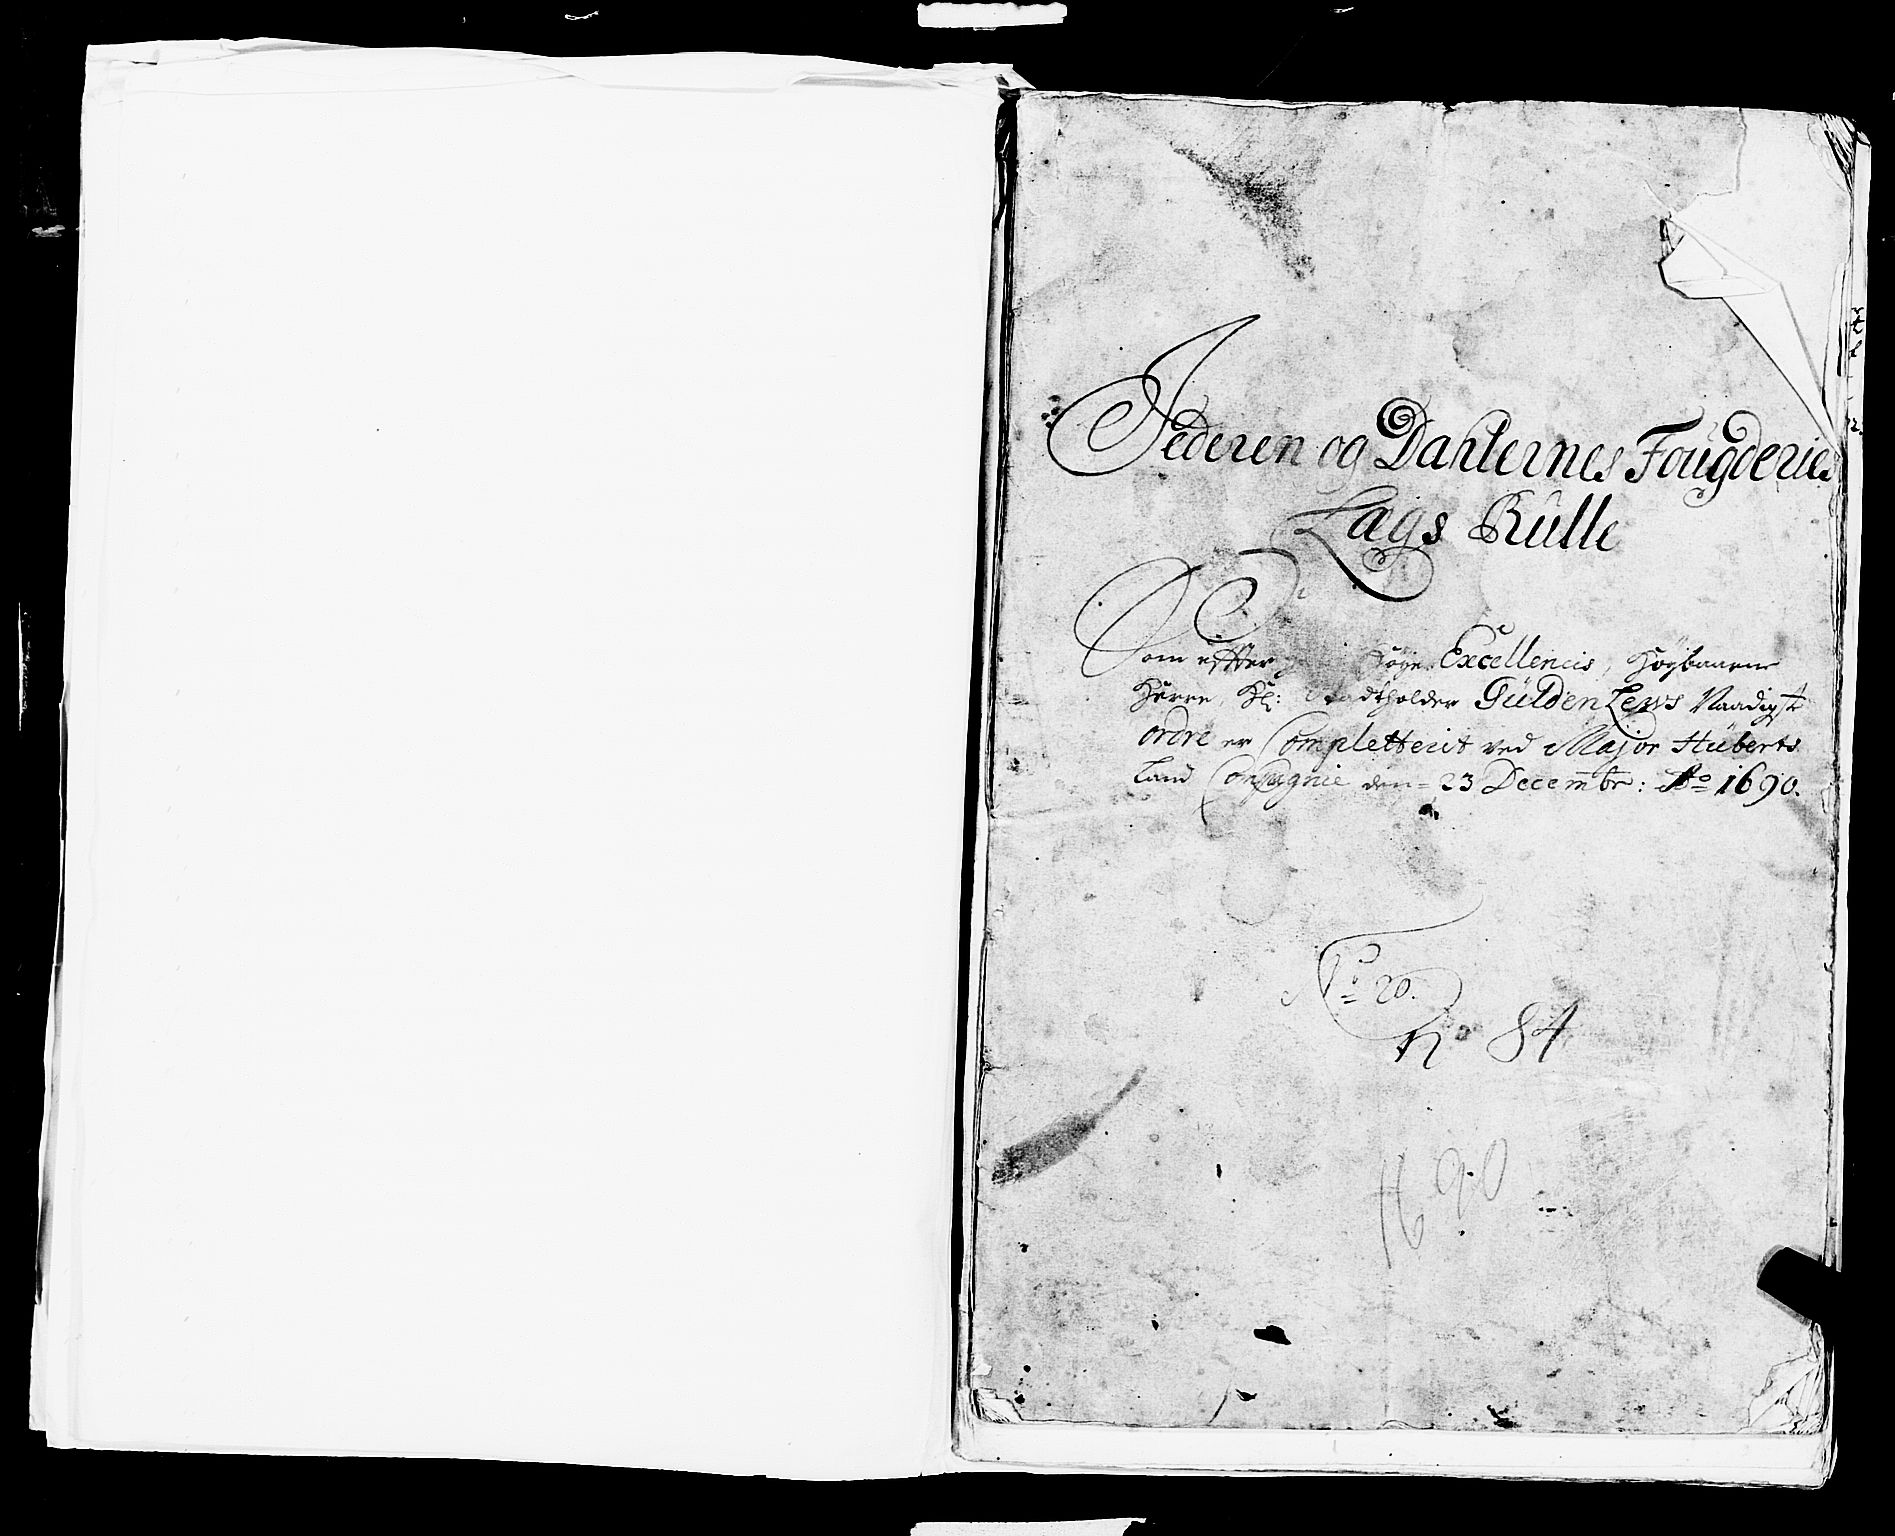 Jederen og Dahlernes Fougderies
Lags Rulle
Som effter Høye Excellencis, Høybaarne
Herre, Hr: Stadtholder Gülden Lews Naadigst
ordre er Completterit ved Major Hüberts
Land Compagnie den 23 Decembr: Ao 1690.
No 20.
No 84
1690